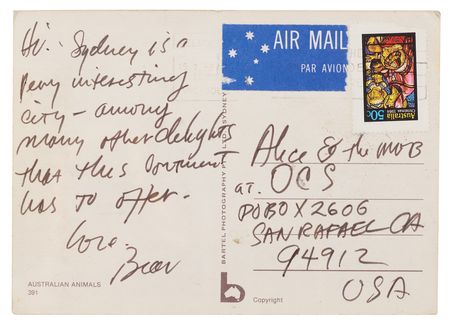 Hi. Sydney is a
very interesting
city - among
many other delights
that this continent
has to offer.
Love.
Bear
AUSTRALIAN ANIMALS
391
BARTEL PHOTOGRAPHY SYDNEY
AIR MAIL
PAR AVION
Australia
Christmas 1984
50c
Alice & the MOB
at. OCS
PO BOX 2606
SAN RAFAEL CA
94912
USA
b
Copyright